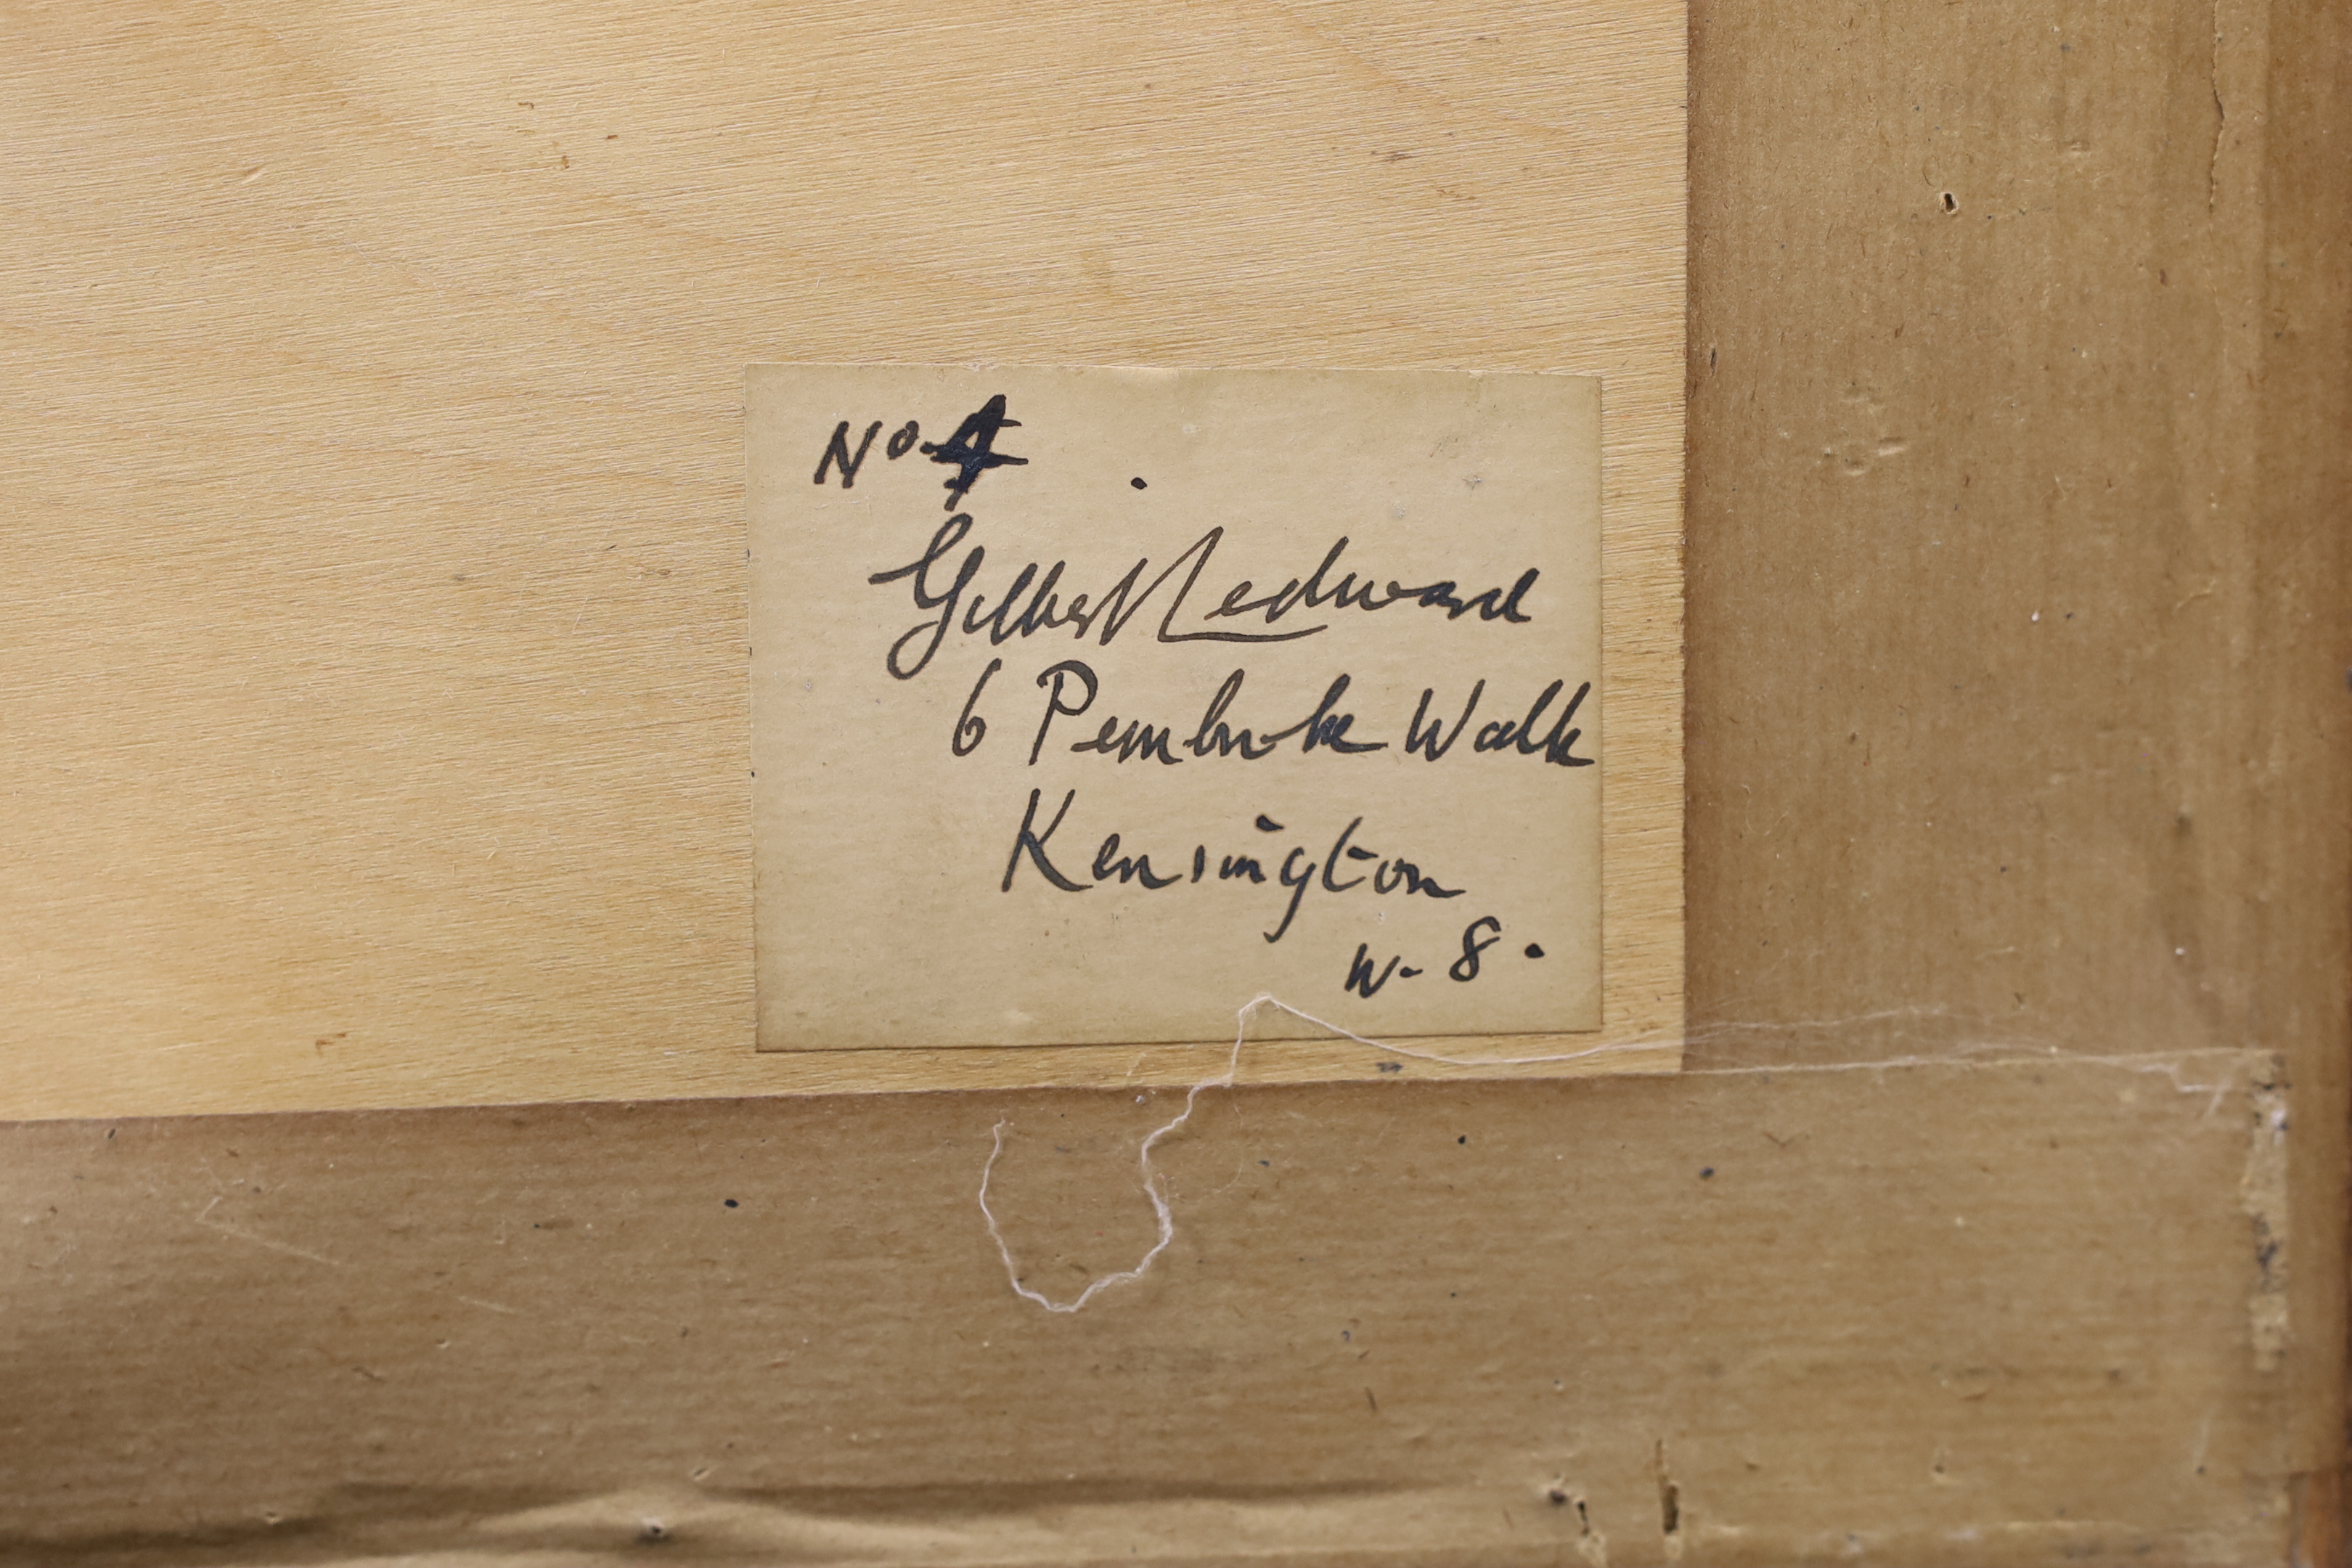 No. 4
Gilbert Ledward
6 Pembroke Walk
Kensington
W. 8.